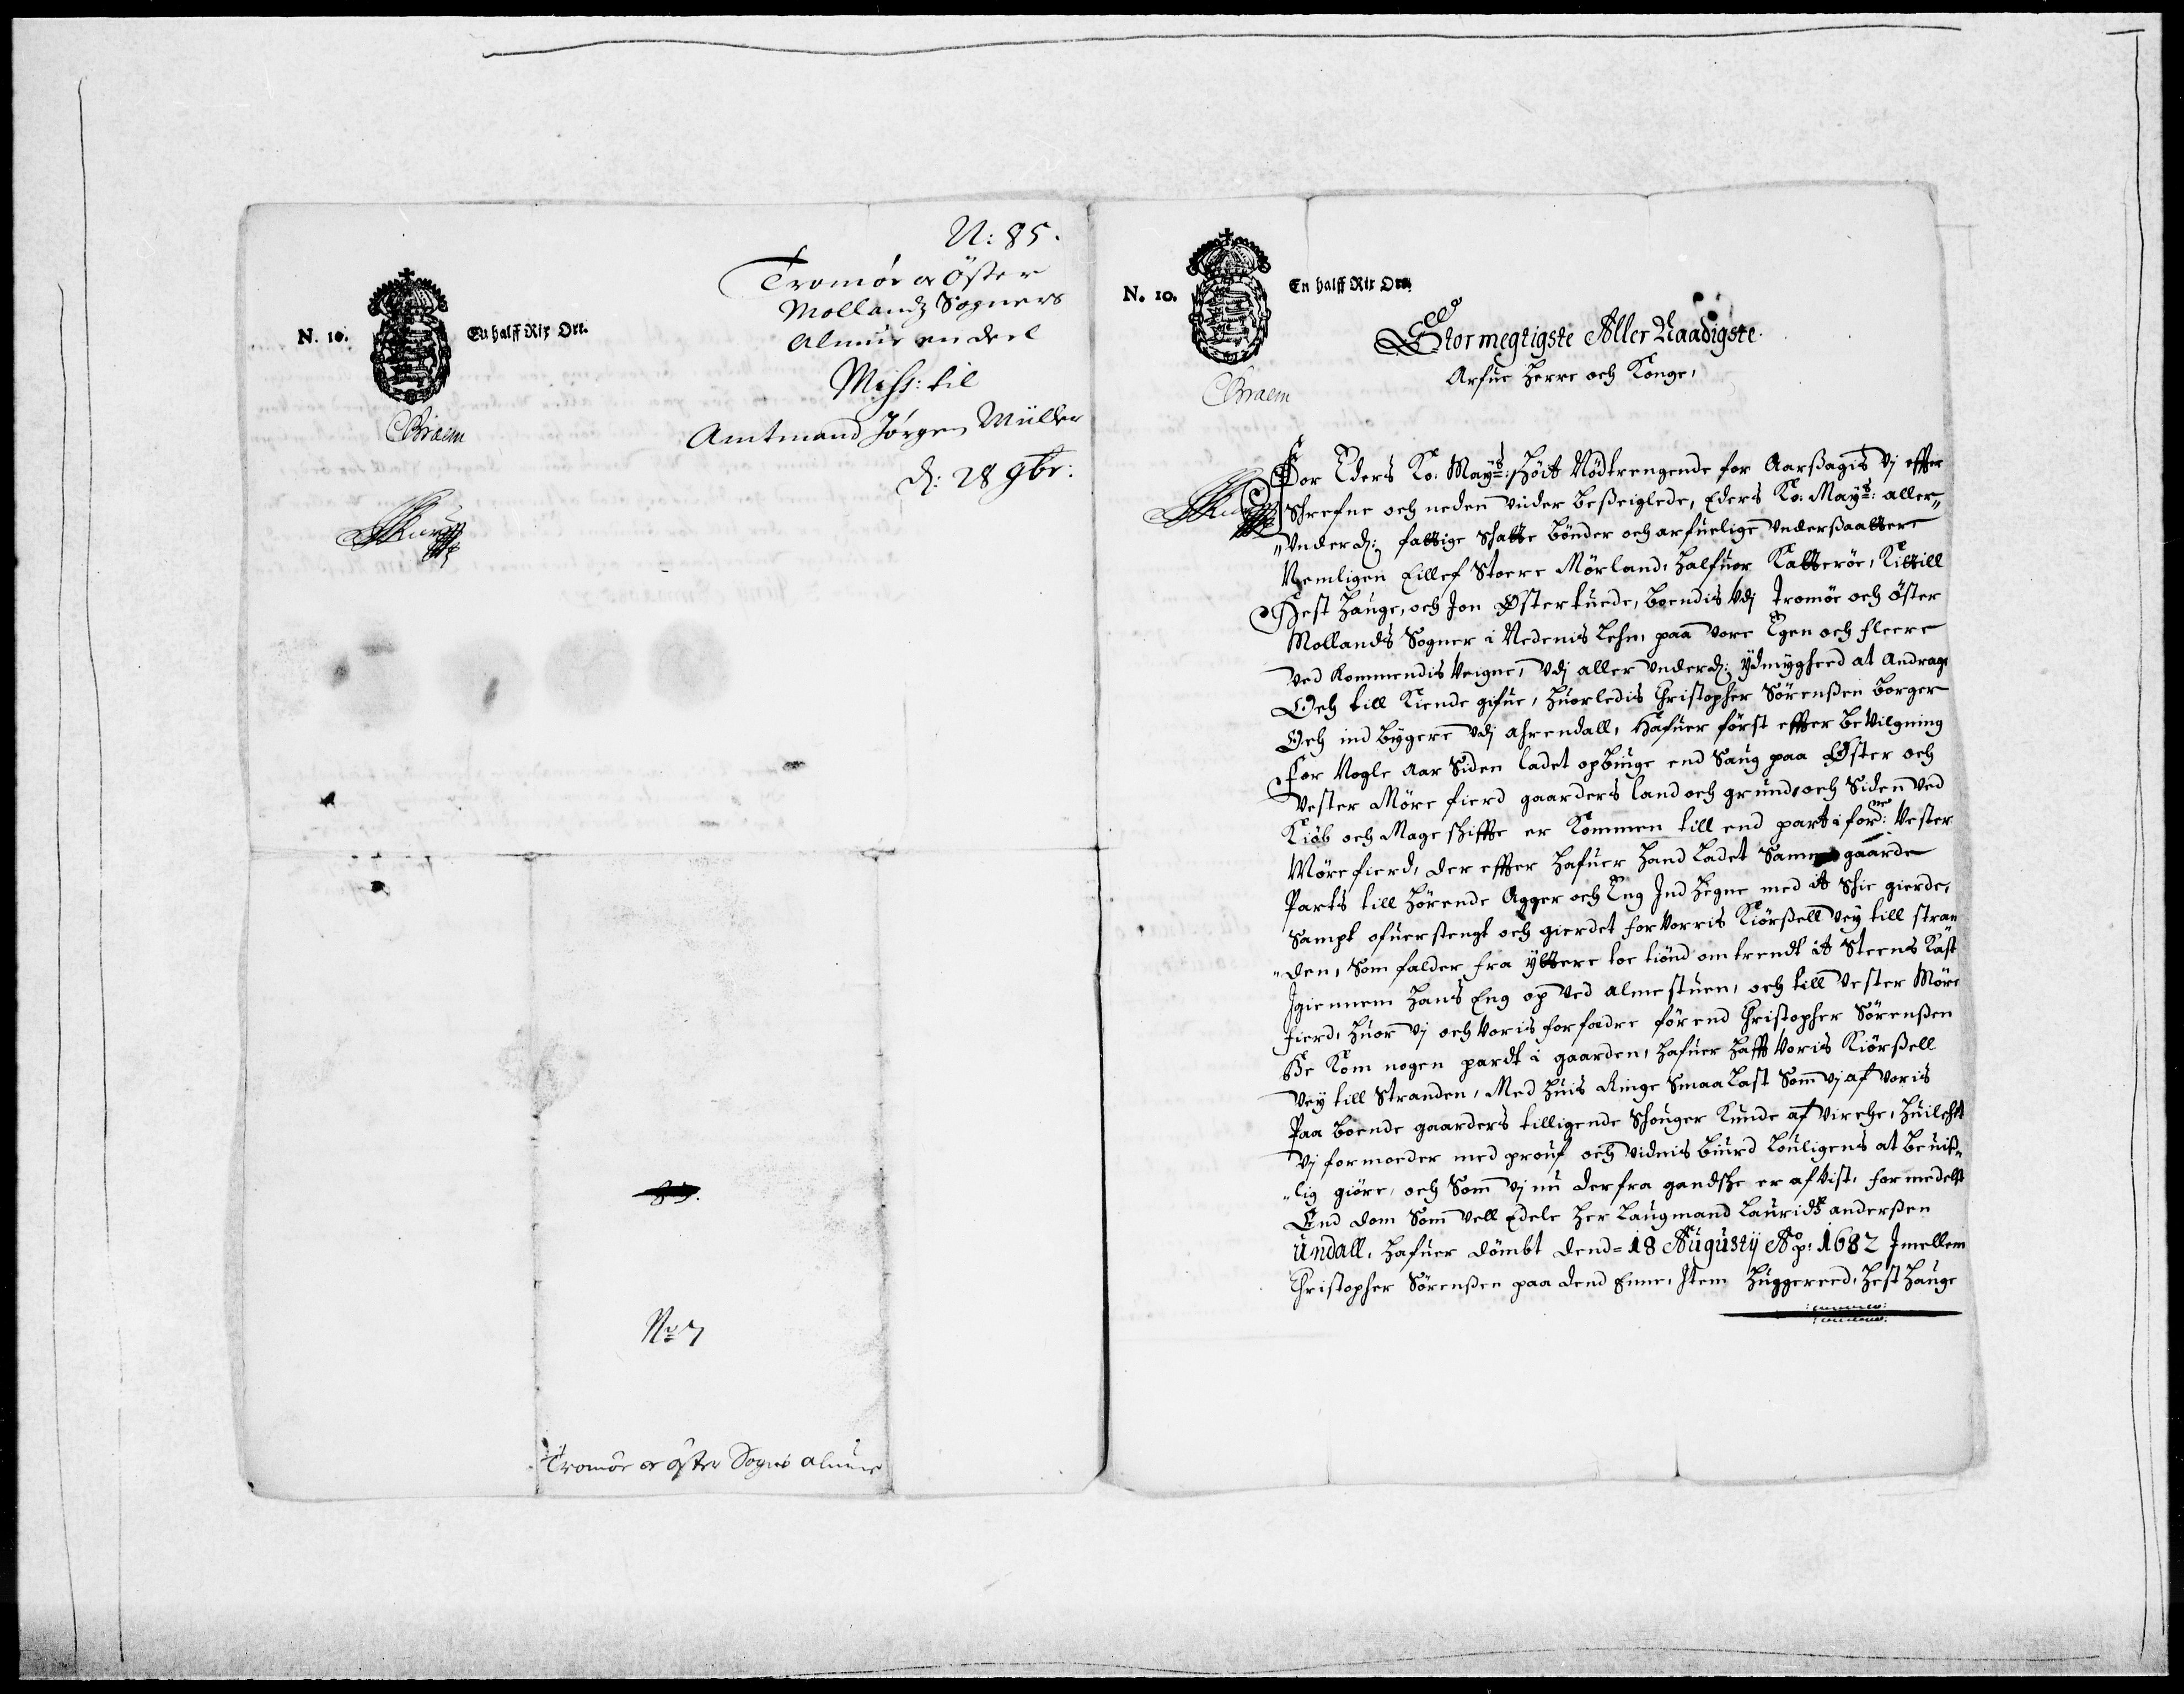 N: 85.
Tromöe oc Öster
Mollandz Sogners
Almue en deel
Miss: til
Amtmand Jörgen Müller
d: 28 9br:
N. 10.
En halff Rix Ort.
Braem
No 7
Tromöe oc öster Sogns almue
N. 10.
En halff Rix Ort.
Braem
Stormegtigste Aller Naadigste
Arfue Herre och Konge,
For Eders Ko: Mays: Höit Nödtrengende for Aarßagis vj effter
Schrefne och neden vnder beßeiglede, Eders Ko: Mays: aller„
„vnderd: fattige Schatte bönder och arfuelige vnderßaattere
Nemligen Eillef Stoere Mörland, Halfuor Katteröe, Kittill
Hest Hauge, och Jon Østertuede, boendis vdj Tromöe och öster
Mollands Sogner i Nedenis Lehn, paa vore Egen och fleere
ved kommendis veigne, vdj aller vnderd: ydmygheed at Andrage
Och till Kiende gifue, huorledis Christopher Sörenßen borger
Och ind bygere vdj ahrendall, Hafuer först effter beVilgning
For Nogle Aar Siden ladet opbüge end Saug paa Øster och
Vester Möre fierd gaarders land och grund, och Siden ved
Kiöb och Mageschiffte er Kommen till end part i forne: Vester
Möre fierd, der effter hafuer hand ladet Samme gaarde
Parts till hörende Agger och Eng Ind hegne med it Schie gierde,
Sampt ofuerstengt och gierdet for vorris Kiörßell vey till stran„
„den, Som falder fra yttere toe tiönd omtrendt it Steens Kast
Igiennem hans Eng op ved almestuen, och till Vester Möre
fierd, huor vj och voris forfædre för end Christopher Sörenßen
Be Kom nogen pardt i gaarden, hafuer hafft voris Kiörßell
vey till Stranden, Med huis Ringe Smaa Last Som vj af voris
Paa boende gaarders tilligende Schouger kunde af virche, huilchet
vj formoeder med prouf och vidnis biurd Louligens at beuiß„
„lig giöre, och Som vj nu derfra gandsche er afVist, formedelst
End dom Som vell Edele her Laugmand Lauridz anderßen
Undall, hafuer dömbt dend = 18 Augusty Ao: 1682 Imellem
Christopher Sörenßen paa dend Enne, Item Huggereed, Hest Hauge